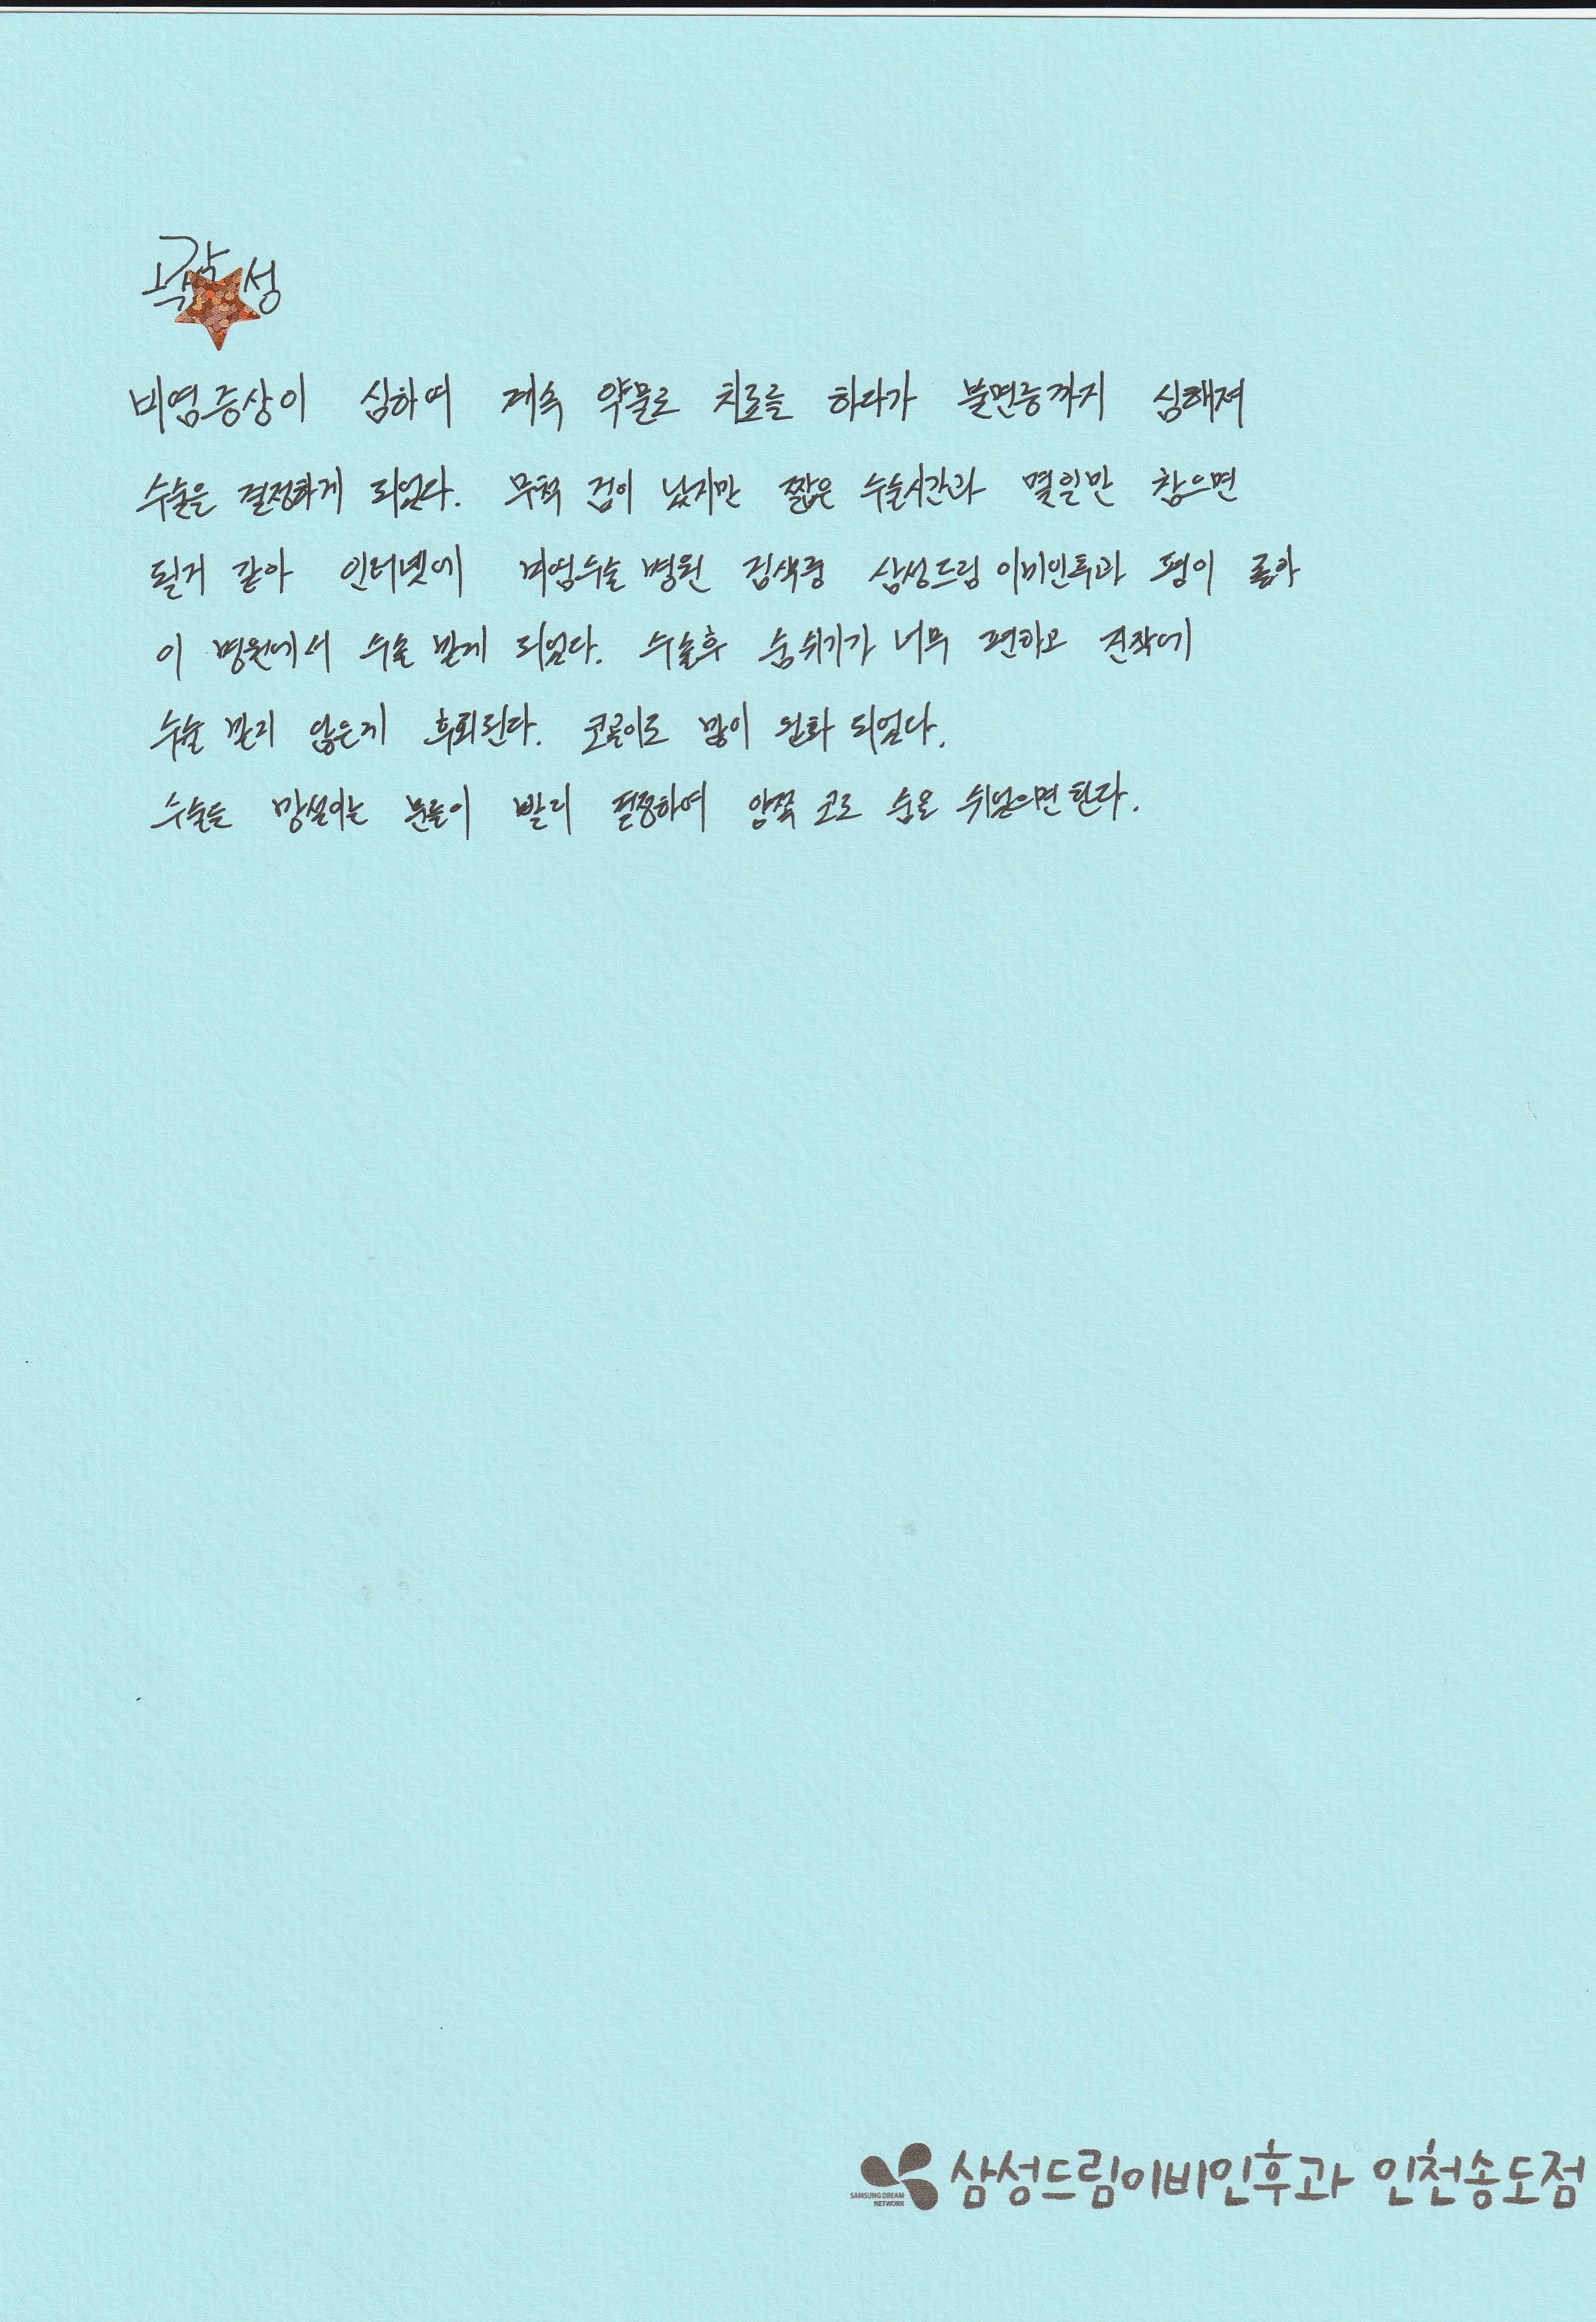 성
비염증상이 심하여 계속 약물로 치료를 하다가 불면증까지 심해져
수술을 결정하게 되었다. 무척 겁이 났지만 짧은 수술시간과 몇일만 참으면
될거 같아 인터넷에 비염수술 병원 검색중 삼성드림이비인후과 평이 좋아
이 병원에서 수술 받게 되었다. 수술후 숨쉬기가 너무 편하고 진작에
수술 받지 않은게 후회된다. 코골이도 많이 완화 되었다.
수술을 망설이는 분들이 빨리 결정하여 양쪽 코로 숨을 쉬었으면한다.
SAMSUNG DREAM
NETWORK
삼성드림이비인후과 인천송도점